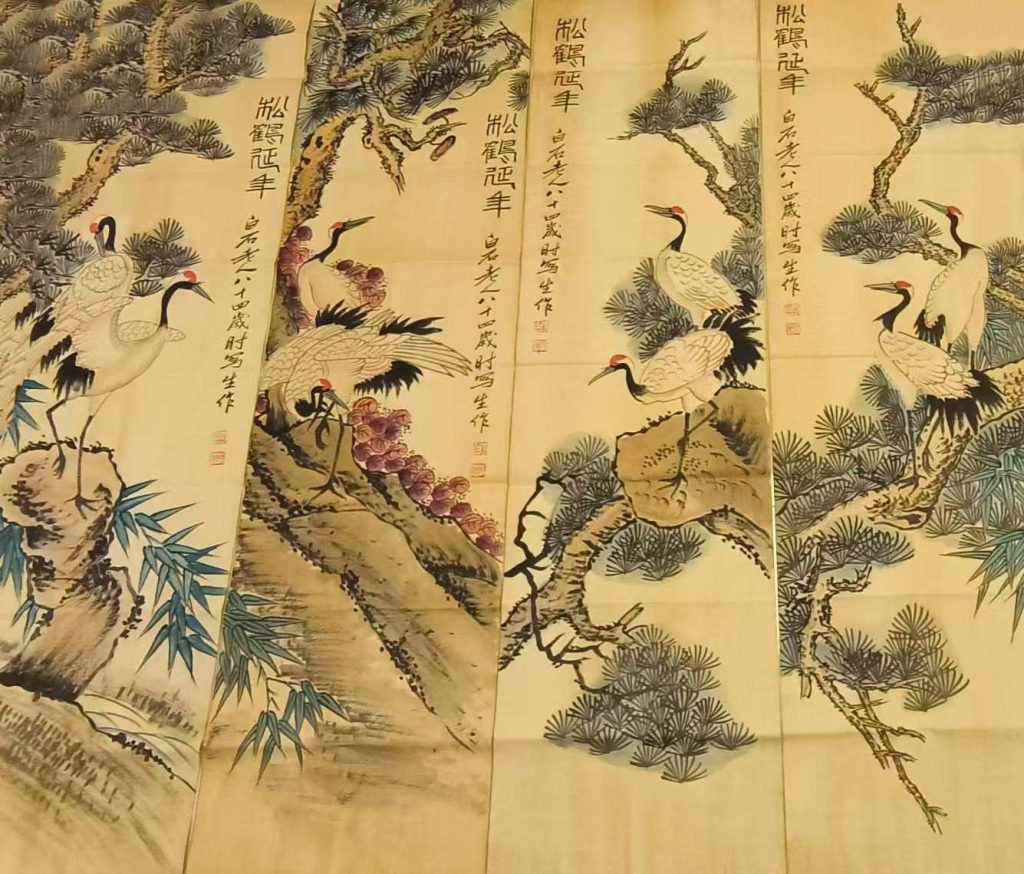 松鹤延年
白石老人八十四歲时写生作
松鹤延年
白石老人八十四歲时写生作
松鹤延年
白石老人八十四歲时写生作
松鹤延年
白石老人八十四歲时写生作